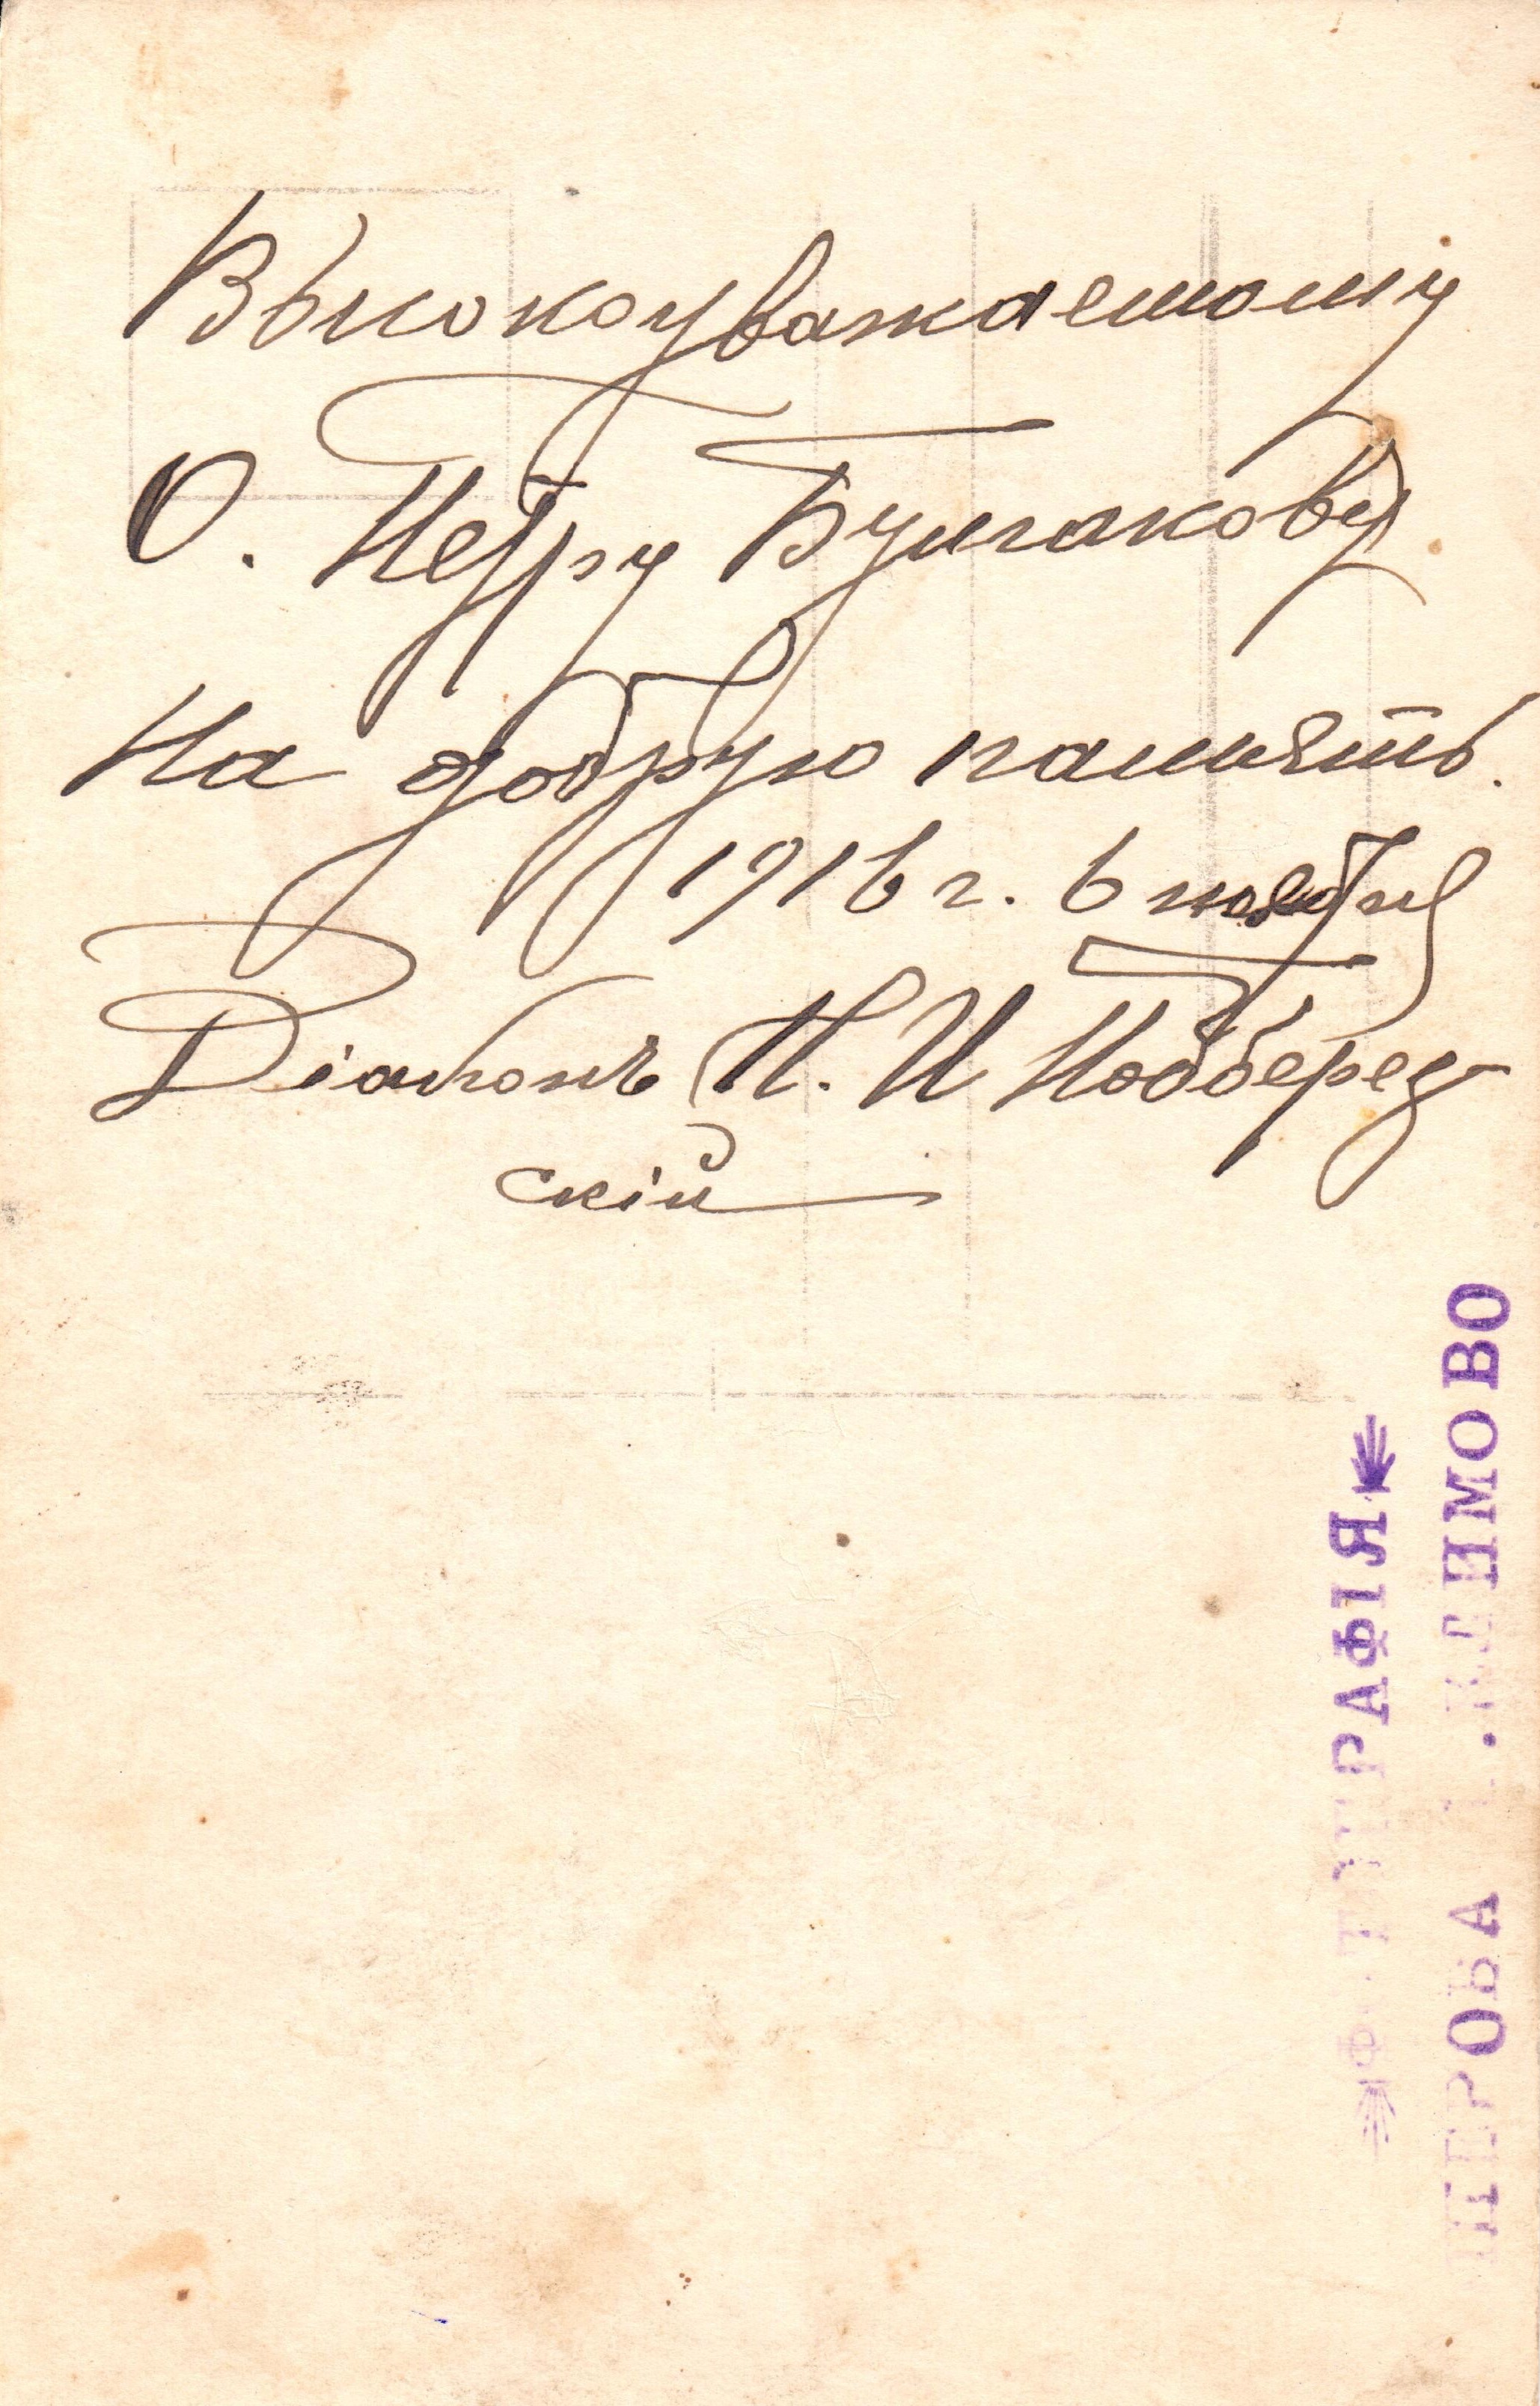 Высокоуважаемому
О. Петру Булгакову
На добрую память.
1916 г. 6 ноября
Дiаконъ П. И Подберез-
скiй
ФОТОГРАФIЯ
ПЕРОВА КЛИМОВО